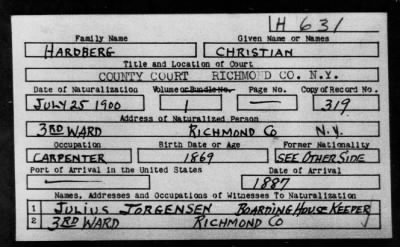 H 631
Family Name Given Name or Names
HARDBERG CHRISTIAN
Title and Location of Court
COUNTY COURT RICHMOND CO. N.Y.
Date of Naturalization Volume or Bundle No. Page No. Copy of Record No.
JULY 25 1900 1 — 319
Address of Naturalized Person
3RD WARD RICHMOND CO N.Y.
Occupation Birth Date or Age Former Nationality
CARPENTER 1869 SEE OTHER SIDE
Port of Arrival in the United States Date of Arrival
— 1887
Names, Addresses and Occupations of Witnesses To Naturalization
1 JULIUS JORGENSEN BOARDING HOUSE KEEPER
2 3RD WARD RICHMOND CO